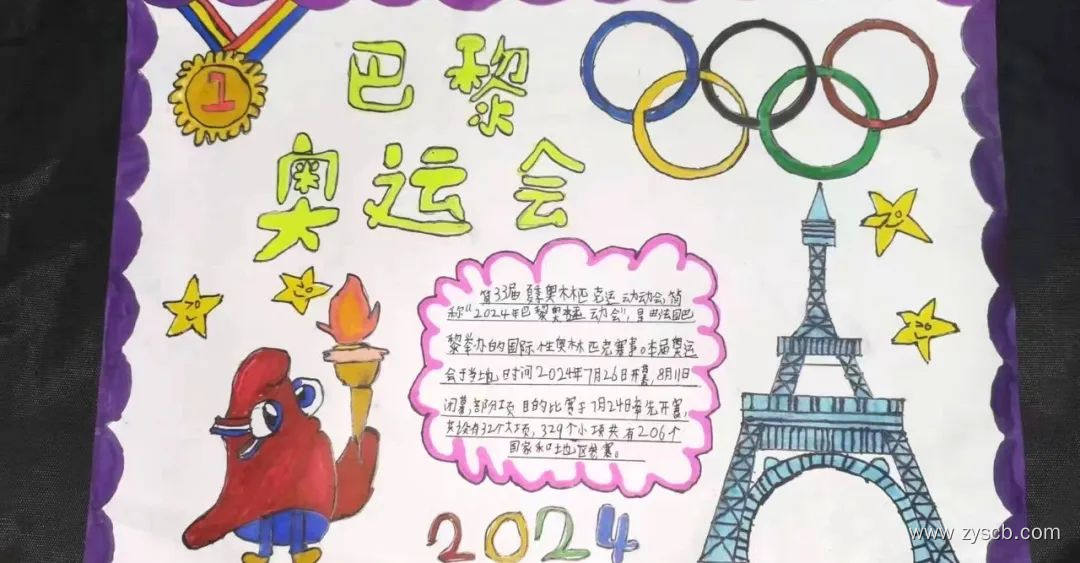 1
巴黎
奥运会
第33届夏季奥林匹克运动动会,简
称"2024年巴黎奥运动会",是由法国巴
黎举办的国际性奥林匹克赛事。本届奥运
会于当地时间2024年7月26日开幕,8月11日
闭幕,部分项目的比赛于7月24日率先开赛,
共设有32个大项,329个小项共有206个
国家和地区参赛。
2024
www.zyscb.com